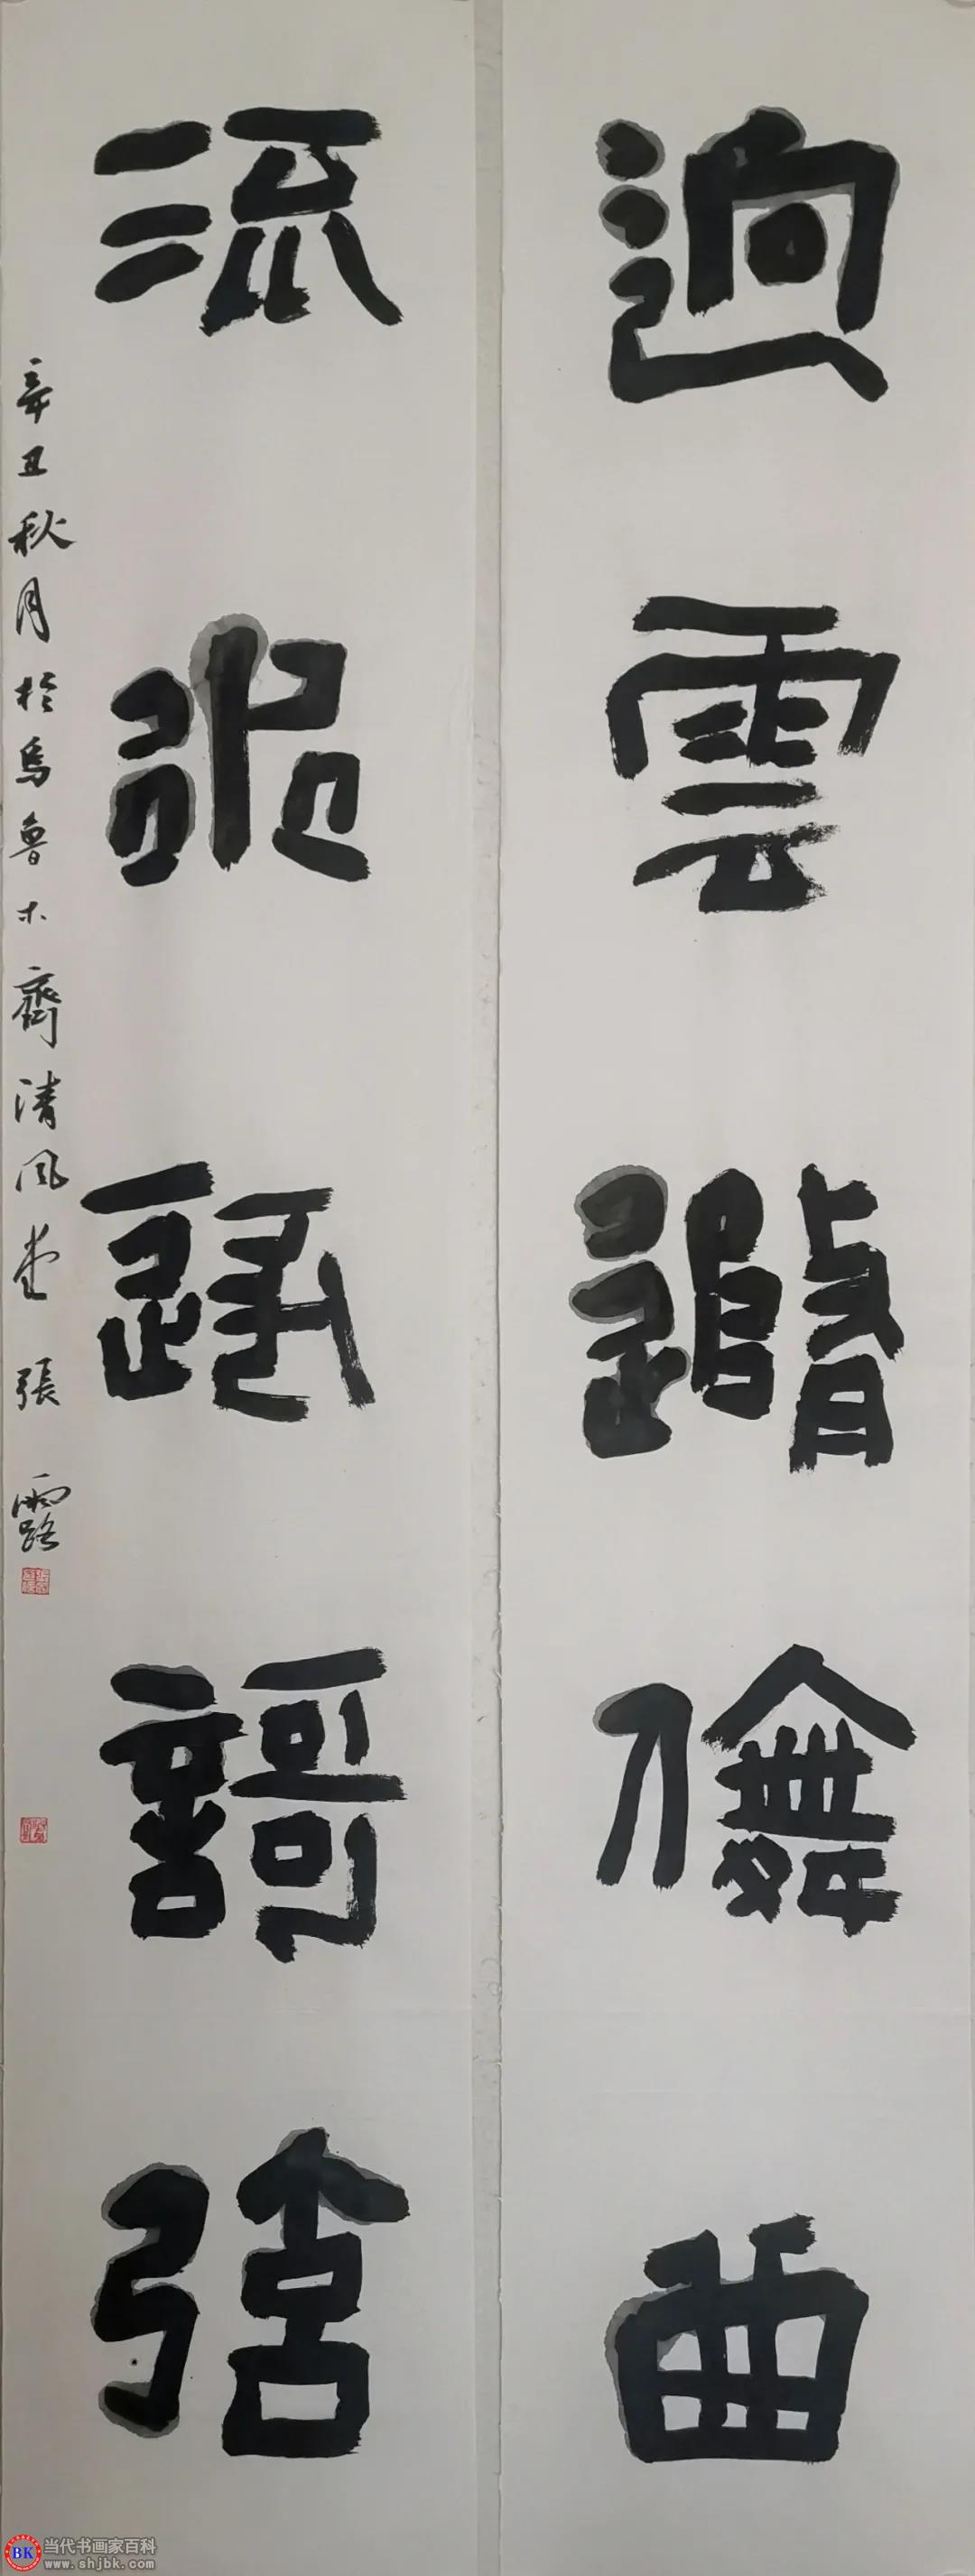 逈雲隨儛曲
流水逐謌弦
辛丑秋月於烏魯木齊清風堂 張露
BK 当代书画家百科
www.shjbk.com